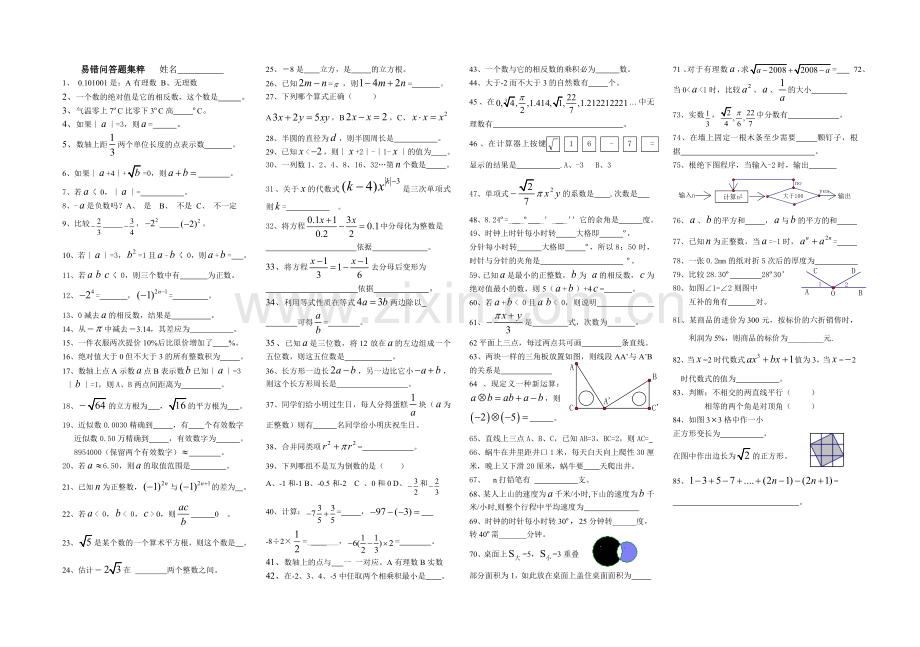 易错问答题集粹 姓名
1、 0.101001是：A有理数 B、无理数
2、一个数的绝对值是它的相反数，这个数是 。
3、气温零上7°C比零下3°C高 °C。
4、如果︱a︱=3，则a= 。
5、数轴上距1/3两个单位长度的点表示数 。
6、如果︱a+4︱+√b=0，则a+b= 。
7、若a〈 0，︱a︱= 。
8、-a是负数吗？A、 是 B、 不是 C、 不一定
9、比较 -2/3 -3/4，-2² (-2)²。
10、若︱a︱=3，b²=1且a-b〈 0，则a+b= 。
11、若abc〈 0，则三个数中有 为正数。
12、-2⁴= ，(-1)²ⁿ⁻¹= 。
13、0减去a的相反数，结果是 。
14、从-π中减去-3.14，其差应为 。
15、一件衣服两次提价10%后比原价增加了 %。
16、绝对值大于0但不大于3的所有整数积为 。
17、数轴上点A示数a点B表示数b已知︱a︱=3
︱b︱=1，则A、B两点间距离为 。
18、-√64的立方根为 ，√16的平方根为 。
19、近似数0.0030精确到 ，有 个有效数字
近似数0.50万精确到 ，有效数字为 。
8954000（保留两个有效数字）≈ 。
20、若a≈6.50，则a的取值范围是 。
21、已知n为正整数，(-1)²ⁿ与(-1)²ⁿ⁺¹的差为 。
22、若a＜0，b＜0，c＞0，则ac/b 0 。
23、√5是某个数的一个算术平方根，则这个数是 。
24、估计-2√3在 两个整数之间。
25、－8是 立方，是 的立方根。
26、已知2m-n=π，则1-4m+2n= 。
27、下列哪个算式正确（ ）
A3x+2y=5xy，B2x-x=2，C、x·x=x²
28、半圆的直径为d，则半圆周长是 。
29、已知x＜-2，则︱x+2︱-︱1-x︱的值为 。
30、一列数1、2、4、8、16、32…第n个数是 。
31、关于x的代数式(k-4)x^|k|-3是三次单项式
则k= 。
32、将方程(0.1x+1)/0.2-3x/2=0.1中分母化为整数是
依据 。
33、将方程(x-1)/3=1-(x-1)/6去分母后变形为
依据 。
34、利用等式性质在等式4a=3b两边除以
可得a/b 。
35、已知a是三位数，将12放在a的左边组成一个
五位数，则这五位数是 。
36、长方形一边长2a-b，另一边比它小-a+b，
则这个长方形周长是 。
37、同学们给小明过生日，每人分得蛋糕1/a块（a为
正整数）则有 名同学给小明庆祝生日。
38、合并同类项r²+πr²= 。
39、下列哪组不是互为倒数的是（ ）
A、-1和-1 B、-0.5和-2 C 、0和0 D、-3/2和-2/3
40、计算：-7 3/5+3/5= ，-97-(-3)=
-8÷2×1/2= ，-6(1/2-1/3)×2= 。
41、数轴上的点与 一 一对应。A有理数B实数
42、在-2、3、4、-5中任取两个相乘积最小是 。
43、一个数与它的相反数的乘积必为 数。
44、大于-2而不大于3的自然数有 个。
45、在0,√4,π/2,1.414,√1,22/7,1.212212221…中无
理数有 。
46 、在计算器上按键√ 1 6 - 7 =
显示的结果是 .A、-3 B、3
47、单项式-√2/7πx²y的系数是 .次数是
48、8.24°= ° ′ ′′ 它的余角是 度。
49、时钟上时针每小时转 大格即 °，
分针每小时转 大格即 °，所以8：50时，
时针与分针的夹角是 °。
59、已知a是最小的正整数，b为a的相反数，c为
绝对值最小的数，则5（a+b）+4c= 。
60、若a+b＜0且ab＞0，则说明
61、-(πx+y)/3是 式，次数为 。
62平面上三点，每过两点共可画 条直线。
63、两块一样的三角板放置如图，则线段AA'与A'B
的关系是
A
B
C A' C'
64 、现定义一种新运算：
a⊗b=ab+a-b，则
(-2)⊗(-5)= 。
65、直线上三点A、B、C，已知AB=3，BC=2。则AC=
66、蜗牛在井里距井口1米，每天白天向上爬性30厘
米，晚上又下滑20厘米，蜗牛要 天爬出井。
67、 n打铅笔有 支。
68、某人上山的速度为a千米/小时,下山的速度为b千
米/小时,则整个行程中平均速度为
69、时钟的时针每小时转30°，25分钟转 度，
转40°需 分钟。
70、桌面上S大=5，S小=3重叠
部分面积为1，如此放在桌面上盖住桌面面积为
71、对于有理数a，求√a-2008+√2008-a= 72、
当0＜a＜1时，比较a²、a、1/a的大小
73、实数1/3，√2/4，π/6，22/7中分数有 。
74、在墙上固定一根木条至少需要 颗钉子，根
据 。
75、根绝下图程序，当输入-2时，输出
no
输入n 计算n² 大于100 yes 输出
76、a、b的平方和 ，a与b的平方的和
77、已知n为正整数，当a=-1时，aⁿ+a²ⁿ=
78、一张0.2mm的纸对折5次后的厚度为
79、比较28.30° 28°30′
80、如图∠1=∠2则图中
互补的角有 对。
C D
1 2
A O B
81、某商品的进价为300元，按标价的六折销售时，
利润为5%，则商品的标价为 元.
82、当x=2时代数式ax³+bx+1值为3，当x=-2
时代数式的值为 。
83、判断：不相交的两直线平行（ ）
相等的两个角是对顶角（ ）
84、如图3×3格中作一小
正方形变长为 ，
在图中作出边长为√2的正方形。
85、1-3+5-7+....+(2n-1)-(2n+1)=
。